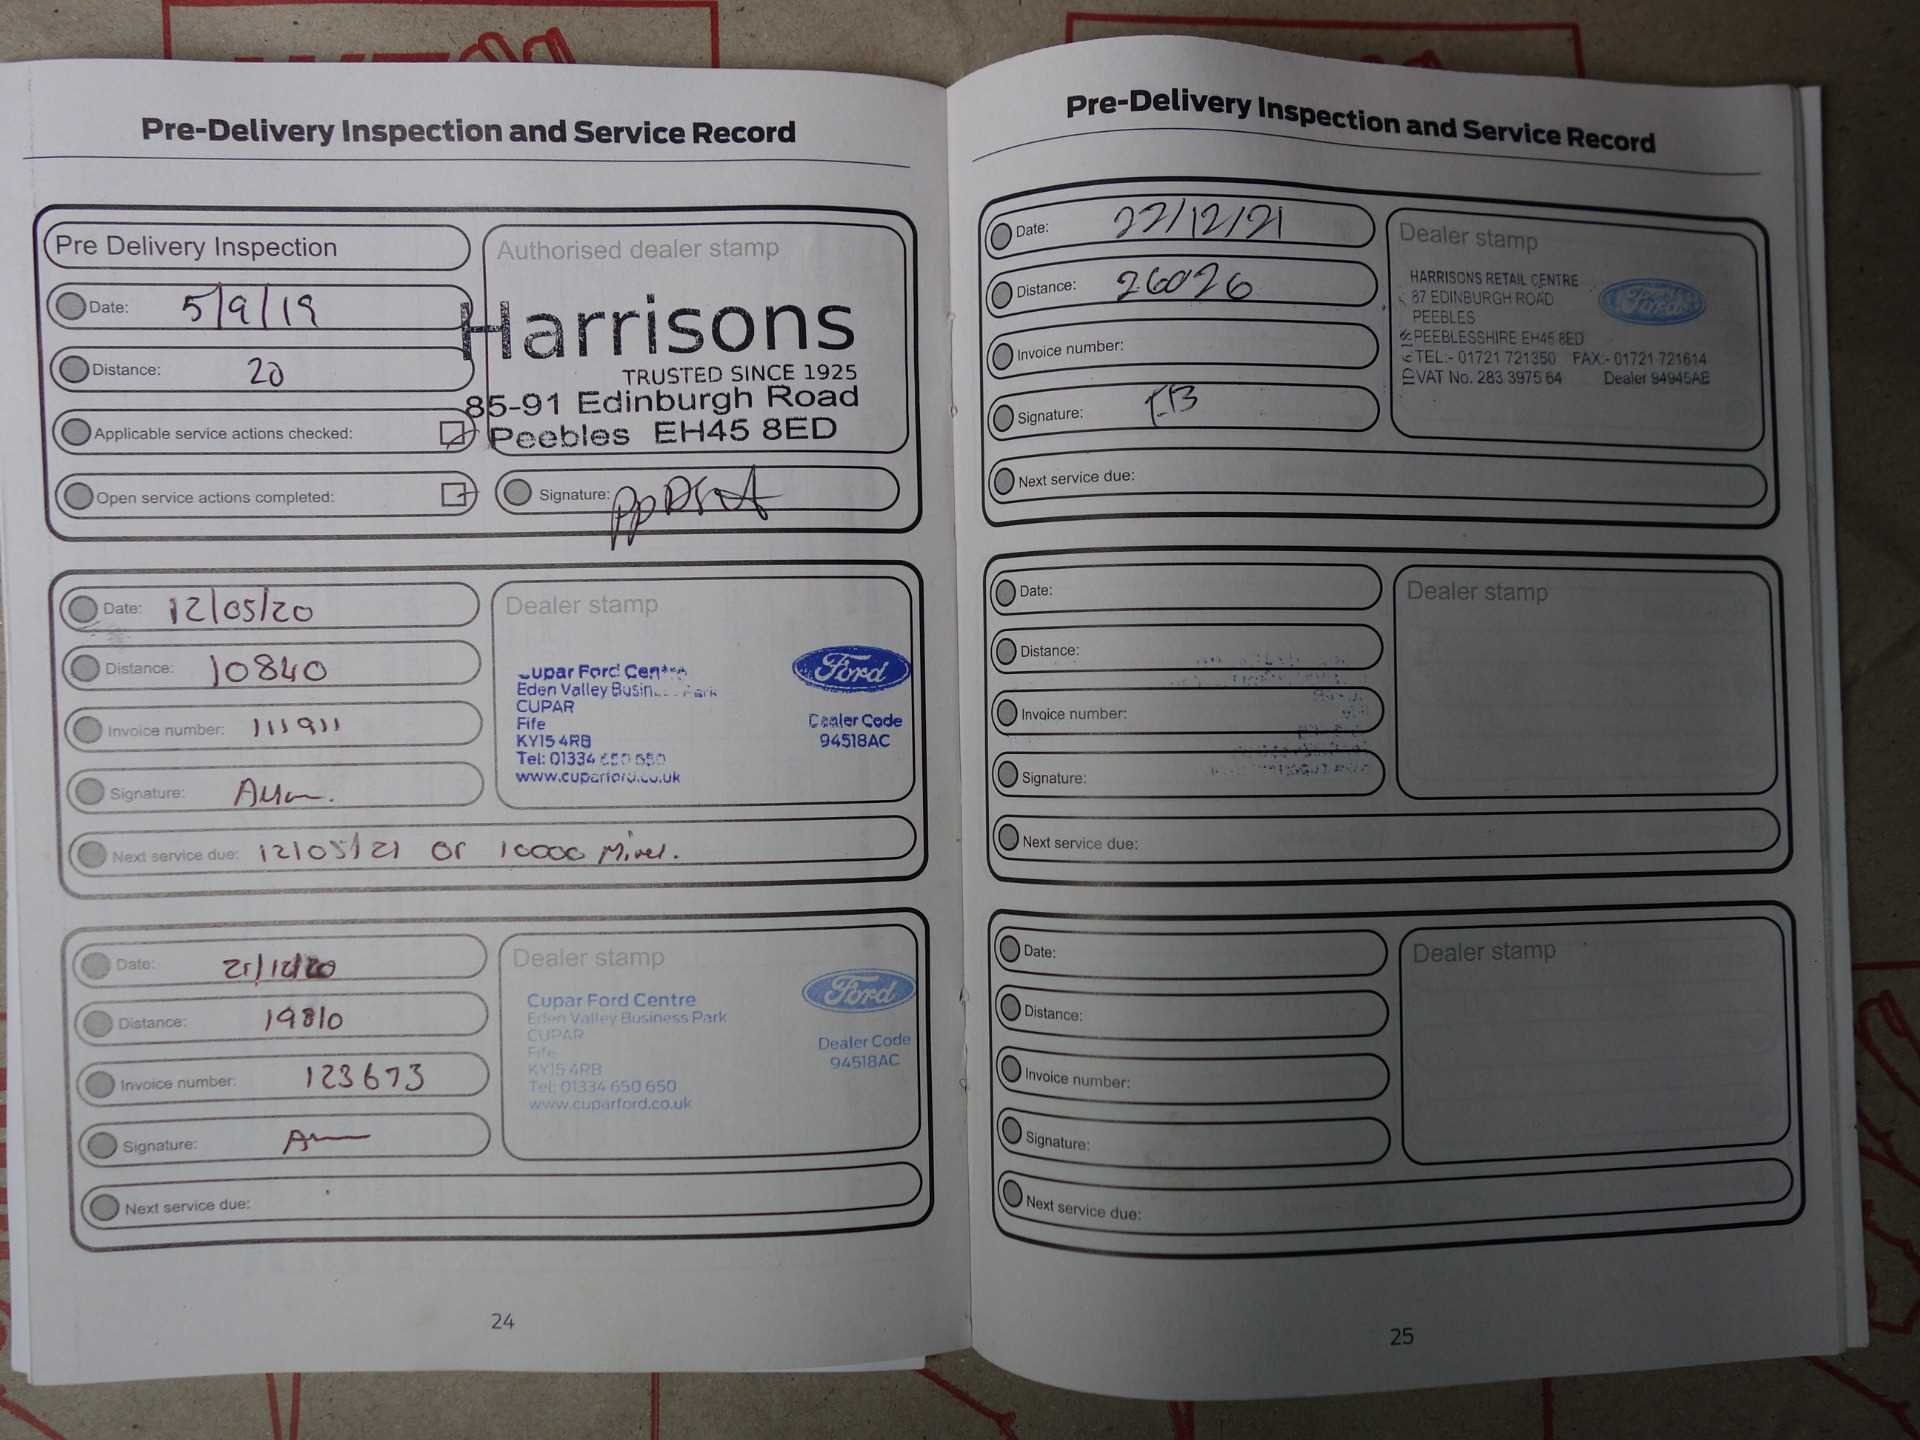 Pre-Delivery Inspection and Service Record
Pre Delivery Inspection
Date: 5/9/19
Distance: 20
Applicable service actions checked:
Open service actions completed:
Authorised dealer stamp
Harrisons
TRUSTED SINCE 1925
85-91 Edinburgh Road
Peebles EH45 8ED
Signature:
Date: 12/05/20
Distance: 10840
Invoice number: 111911
Signature:
Next service due: 12/05/21 or 10000 Miles.
Dealer stamp
Cupar Ford Centre
Eden Valley Business Park
CUPAR
Fife
KY15 4RB
Tel: 01334 650 650
www.cuparford.co.uk
Ford
Dealer Code
94518AC
Date: 21/12/20
Distance: 19810
Invoice number: 123673
Signature:
Next service due:
Dealer stamp
Cupar Ford Centre
Eden Valley Business Park
CUPAR
Fife
KY15 4RB
Tel: 01334 650 650
www.cuparford.co.uk
Ford
Dealer Code
94518AC
24
Pre-Delivery Inspection and Service Record
Date: 22/12/21
Distance: 26026
Invoice number:
Signature:
Next service due:
Dealer stamp
HARRISONS RETAIL CENTRE
87 EDINBURGH ROAD
PEEBLES
PEEBLESSHIRE EH45 8ED
TEL:- 01721 721350 FAX:- 01721 721614
VAT No. 283 3975 64 Dealer 94945AB
Ford
Date:
Distance:
Invoice number:
Signature:
Next service due:
Dealer stamp
Date:
Distance:
Invoice number:
Signature:
Next service due:
Dealer stamp
25